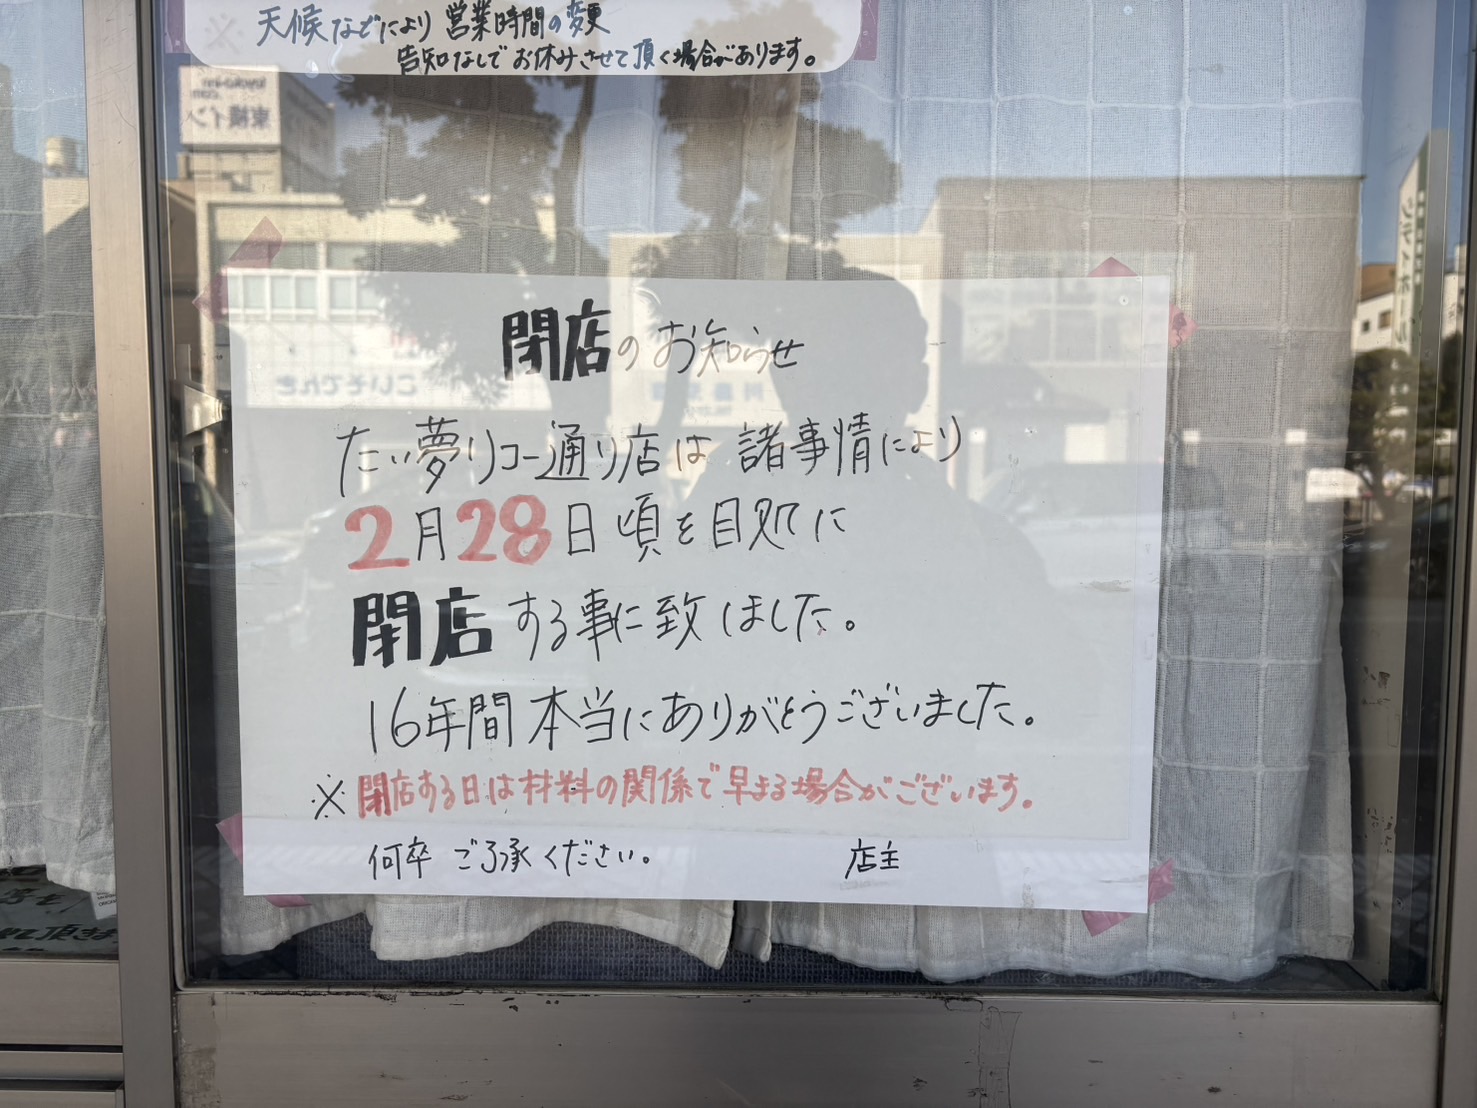 天候などにより営業時間の変更
告知なしでお休みさせて頂く場合があります。
東横イン
閉店のお知らせ
たい夢リコー通り店は諸事情により
2月28日頃を目処に
閉店する事に致しました。
16年間本当にありがとうございました。
※閉店する日は材料の関係で早まる場合がございます。
何卒ご了承ください。 店主
こいそでんき
シティホール
頂きます